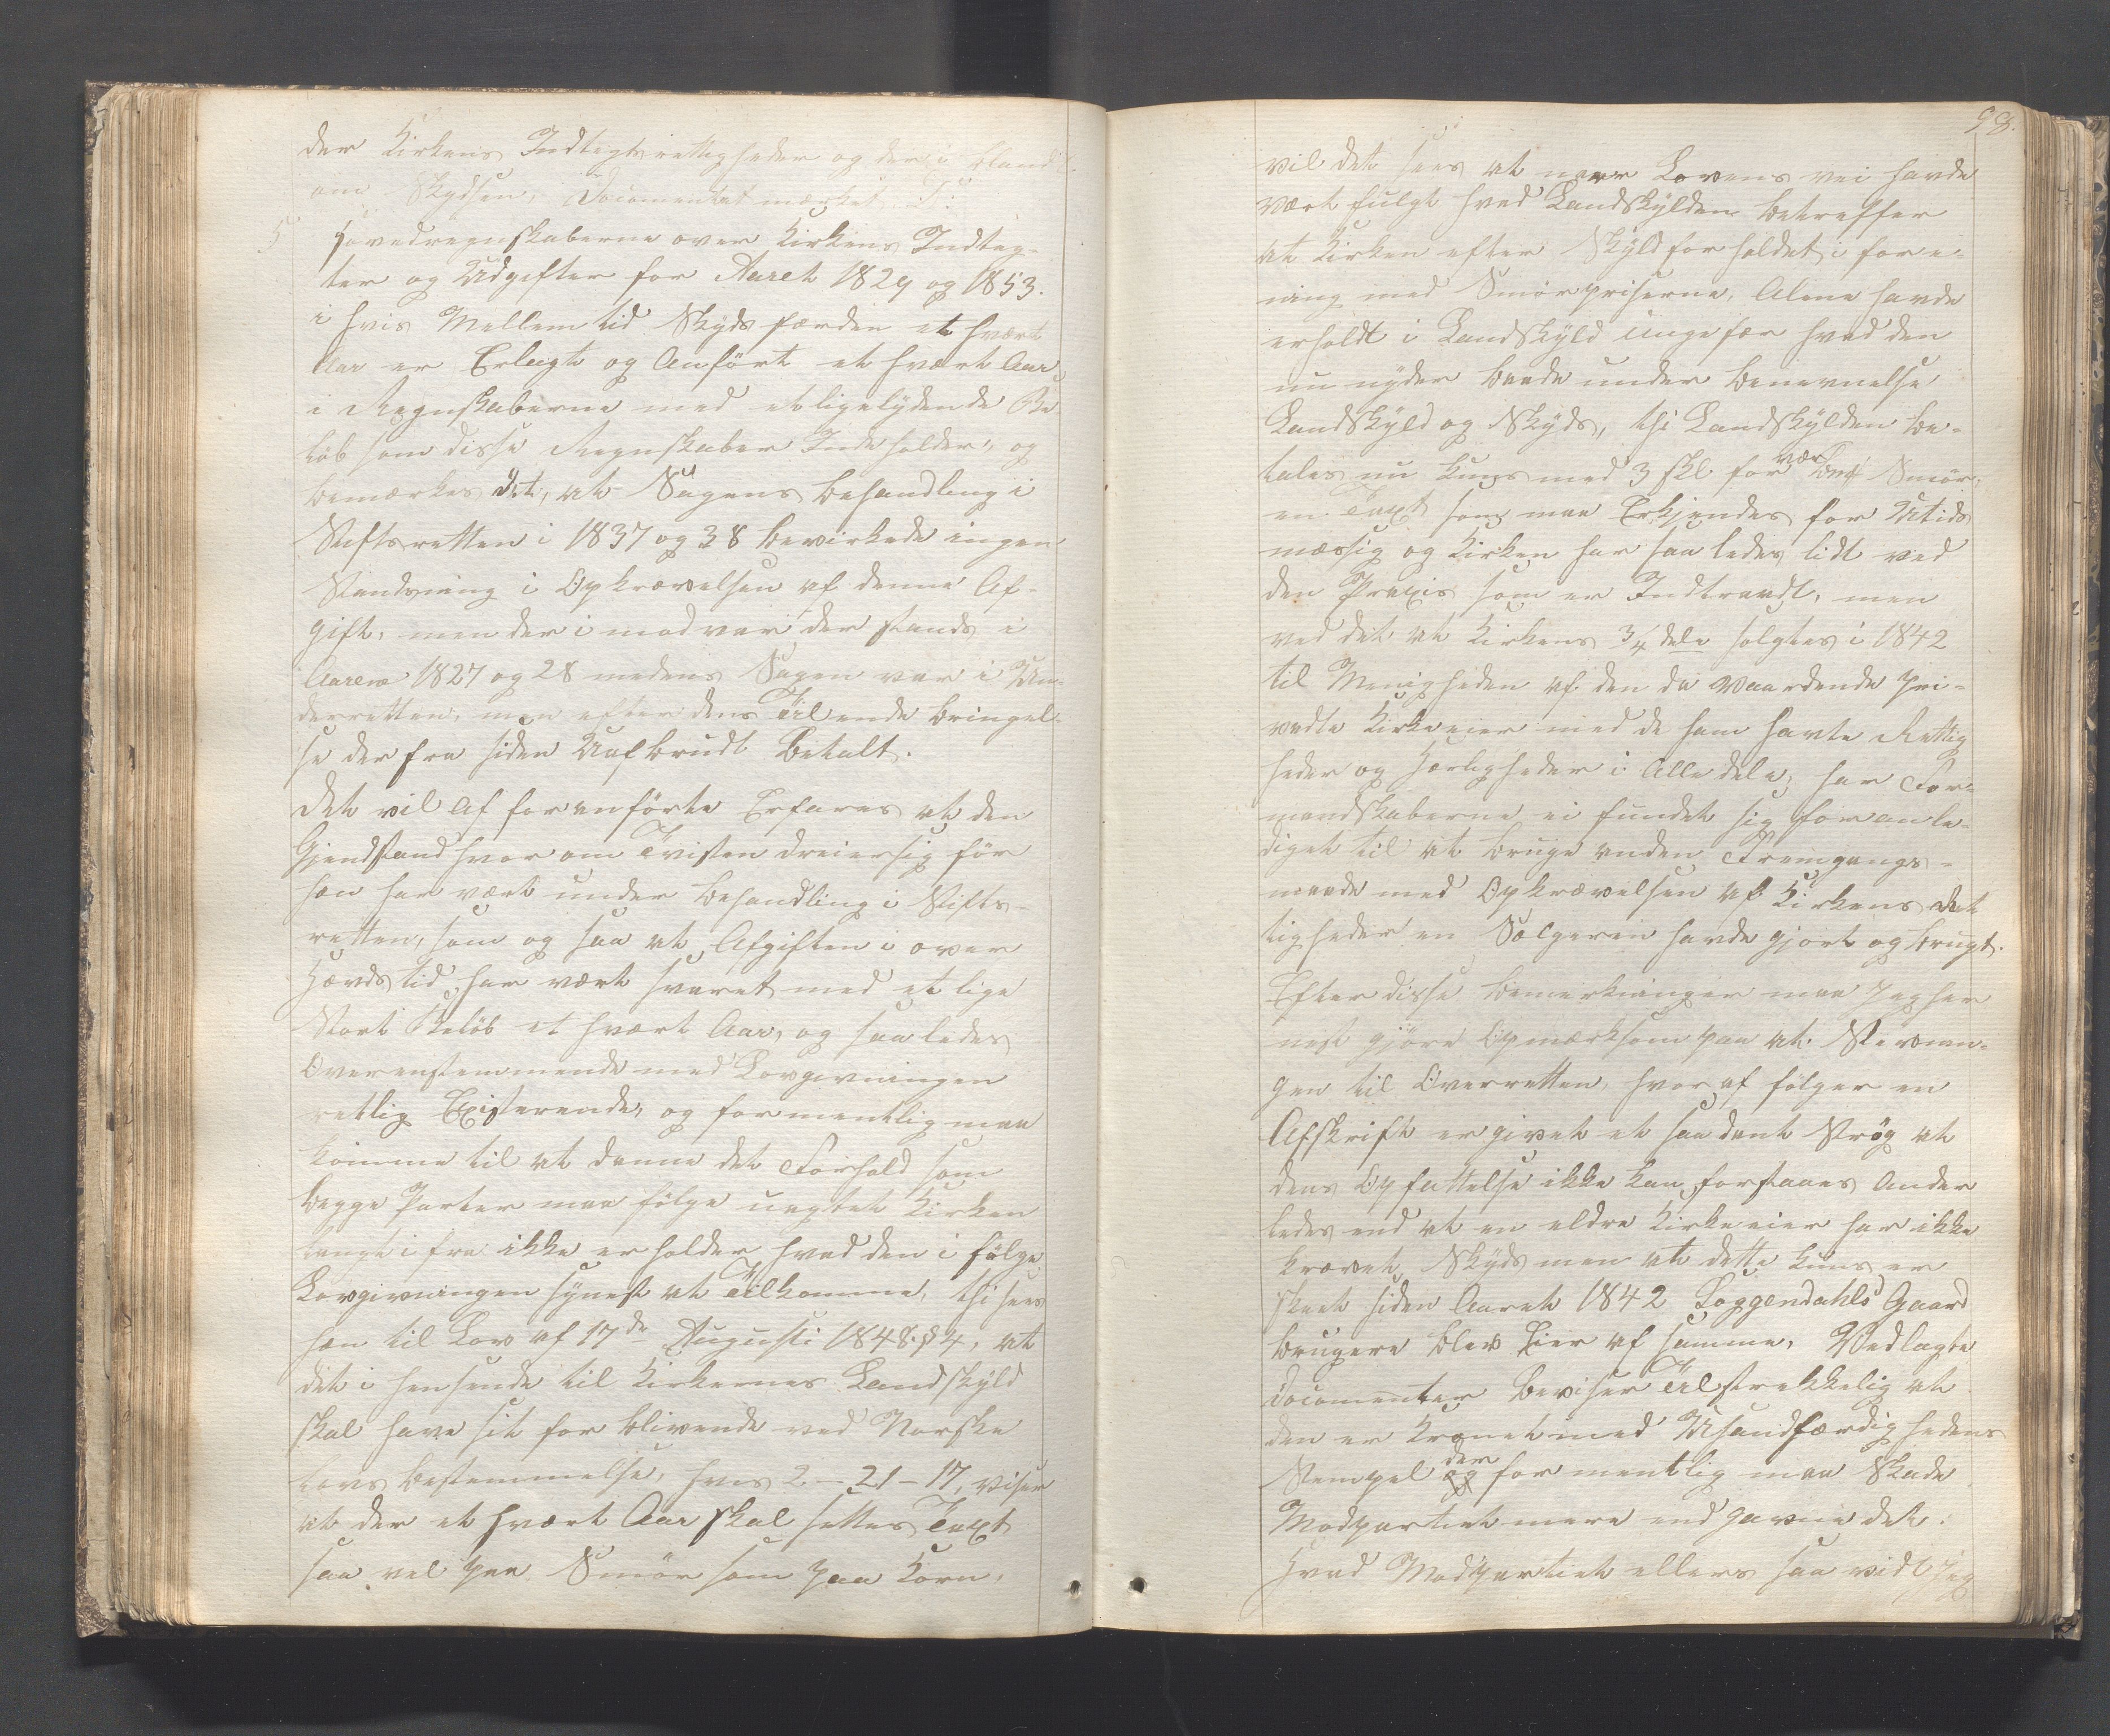 der Kirkens Indtegtsrettigheder og der i bland
om Skydsen, Documentet mærket J:
5 Hovedregnskaberne over Kirkens Indteg-
ter og Udgifter for Aaret 1829 og 1853.
i hvis Mellem tid Skyds færden et hvært
Aar er Erlagt og Anført et hvært Aar
i Regnskaberne med et ligelydende Be
løb som disse Regnskaber Inde holder, og
bemærkes det, at Sagens behandling i
Stiftsretten i 1837 og 38 bevirkede ingen
Standsning i Opkrævelsen af denne Af-
gift, men der i mod var der stands i
Aarene 1827 og 28 medens Sagen var i Un-
derretten, men efter dens Til ende bringel-
se der fra siden Uafbrudt Betalt.
Det vil af for anførte Erfares at den
Gjendstand hvor om Tvisten dreier sig før
hen har vært under behandling i Stifts-
retten, som og saa at Afgiften i over
Hævds tid har vært svaret med et lige
Stort Beløb et hvært Aar, og saa ledes
Overenstemmende med Lovgivningen
retlig Existerende, og formentlig maa
komme til at danne det Forhold som
begge Parter maa følge uagtet Kirken
langt i fra ikke er holder hvad den i følge
Lovgivningen synest at Tilkomme, thi sees
hen til Lov af 17de Augusti 1848. § 4, at
det i hensende til Kirkernes Landskyld
skal have sit for blivende ved Norske
lovs bestemmelse, hvis 2 - 21 - 17, viser
at der et hvært Aar skal settes Taxt
saa vel paa Smør som paa Korn,
98.
vil det sees at naar Lovens vei havde
vært fulgt hvad Landskylden betreffer
at Kirken efter Skyldforholdet i fore-
ning med Smørpriserne, Alene havde
erholdt i Landskyld ungefær hvad den
nu nyder baade under benevnelse
Landskyld og Skyds, thi Landskylden be-
tales nu kuns med 3 skl for vær Smør,
en Taxt som maa Erkjendes for Utids
mæssig og Kirken har saa ledes lidt ved
den Praxis som er Indtraadt, men
ved det at Kirkens 3/4 dele solgtes i 1842
til Menigheden af den da værende pri-
vadte Kirkeeier med de ham havte Rettig
heder og Herligheder i Alle dele, har For-
mandskaberne ei fundet sig foranle-
diget til at bruge anden Fremgangs-
maade med Opkrævelsen af Kirkens Ret
tigheder en Sælgeren havde gjort og brugt.
Efter disse bemerkninger maa jeg her
nest gjøre Opmærksom paa at Stevnin-
gen til Overretten, hvor af følger en
Afskrift er givet et saadant Strøg at
dens Opfattelse ikke kan forstaaes Ander
ledes end at en eldre Kirkeeier har ikke
krævet Skyds men at dette kuns er
skeet siden Aaret 1842 Loggendahls Gaard
brugere blev Eier af samme, Vedlagte
Documenter beviser Tilstrekkelig at
den er Kronet med Usandfærdighedens
Stempel der for mentlig maa Skade
Modpartiet mere end gavne det.
Hvad Modpartiet ellers saa vidt jeg